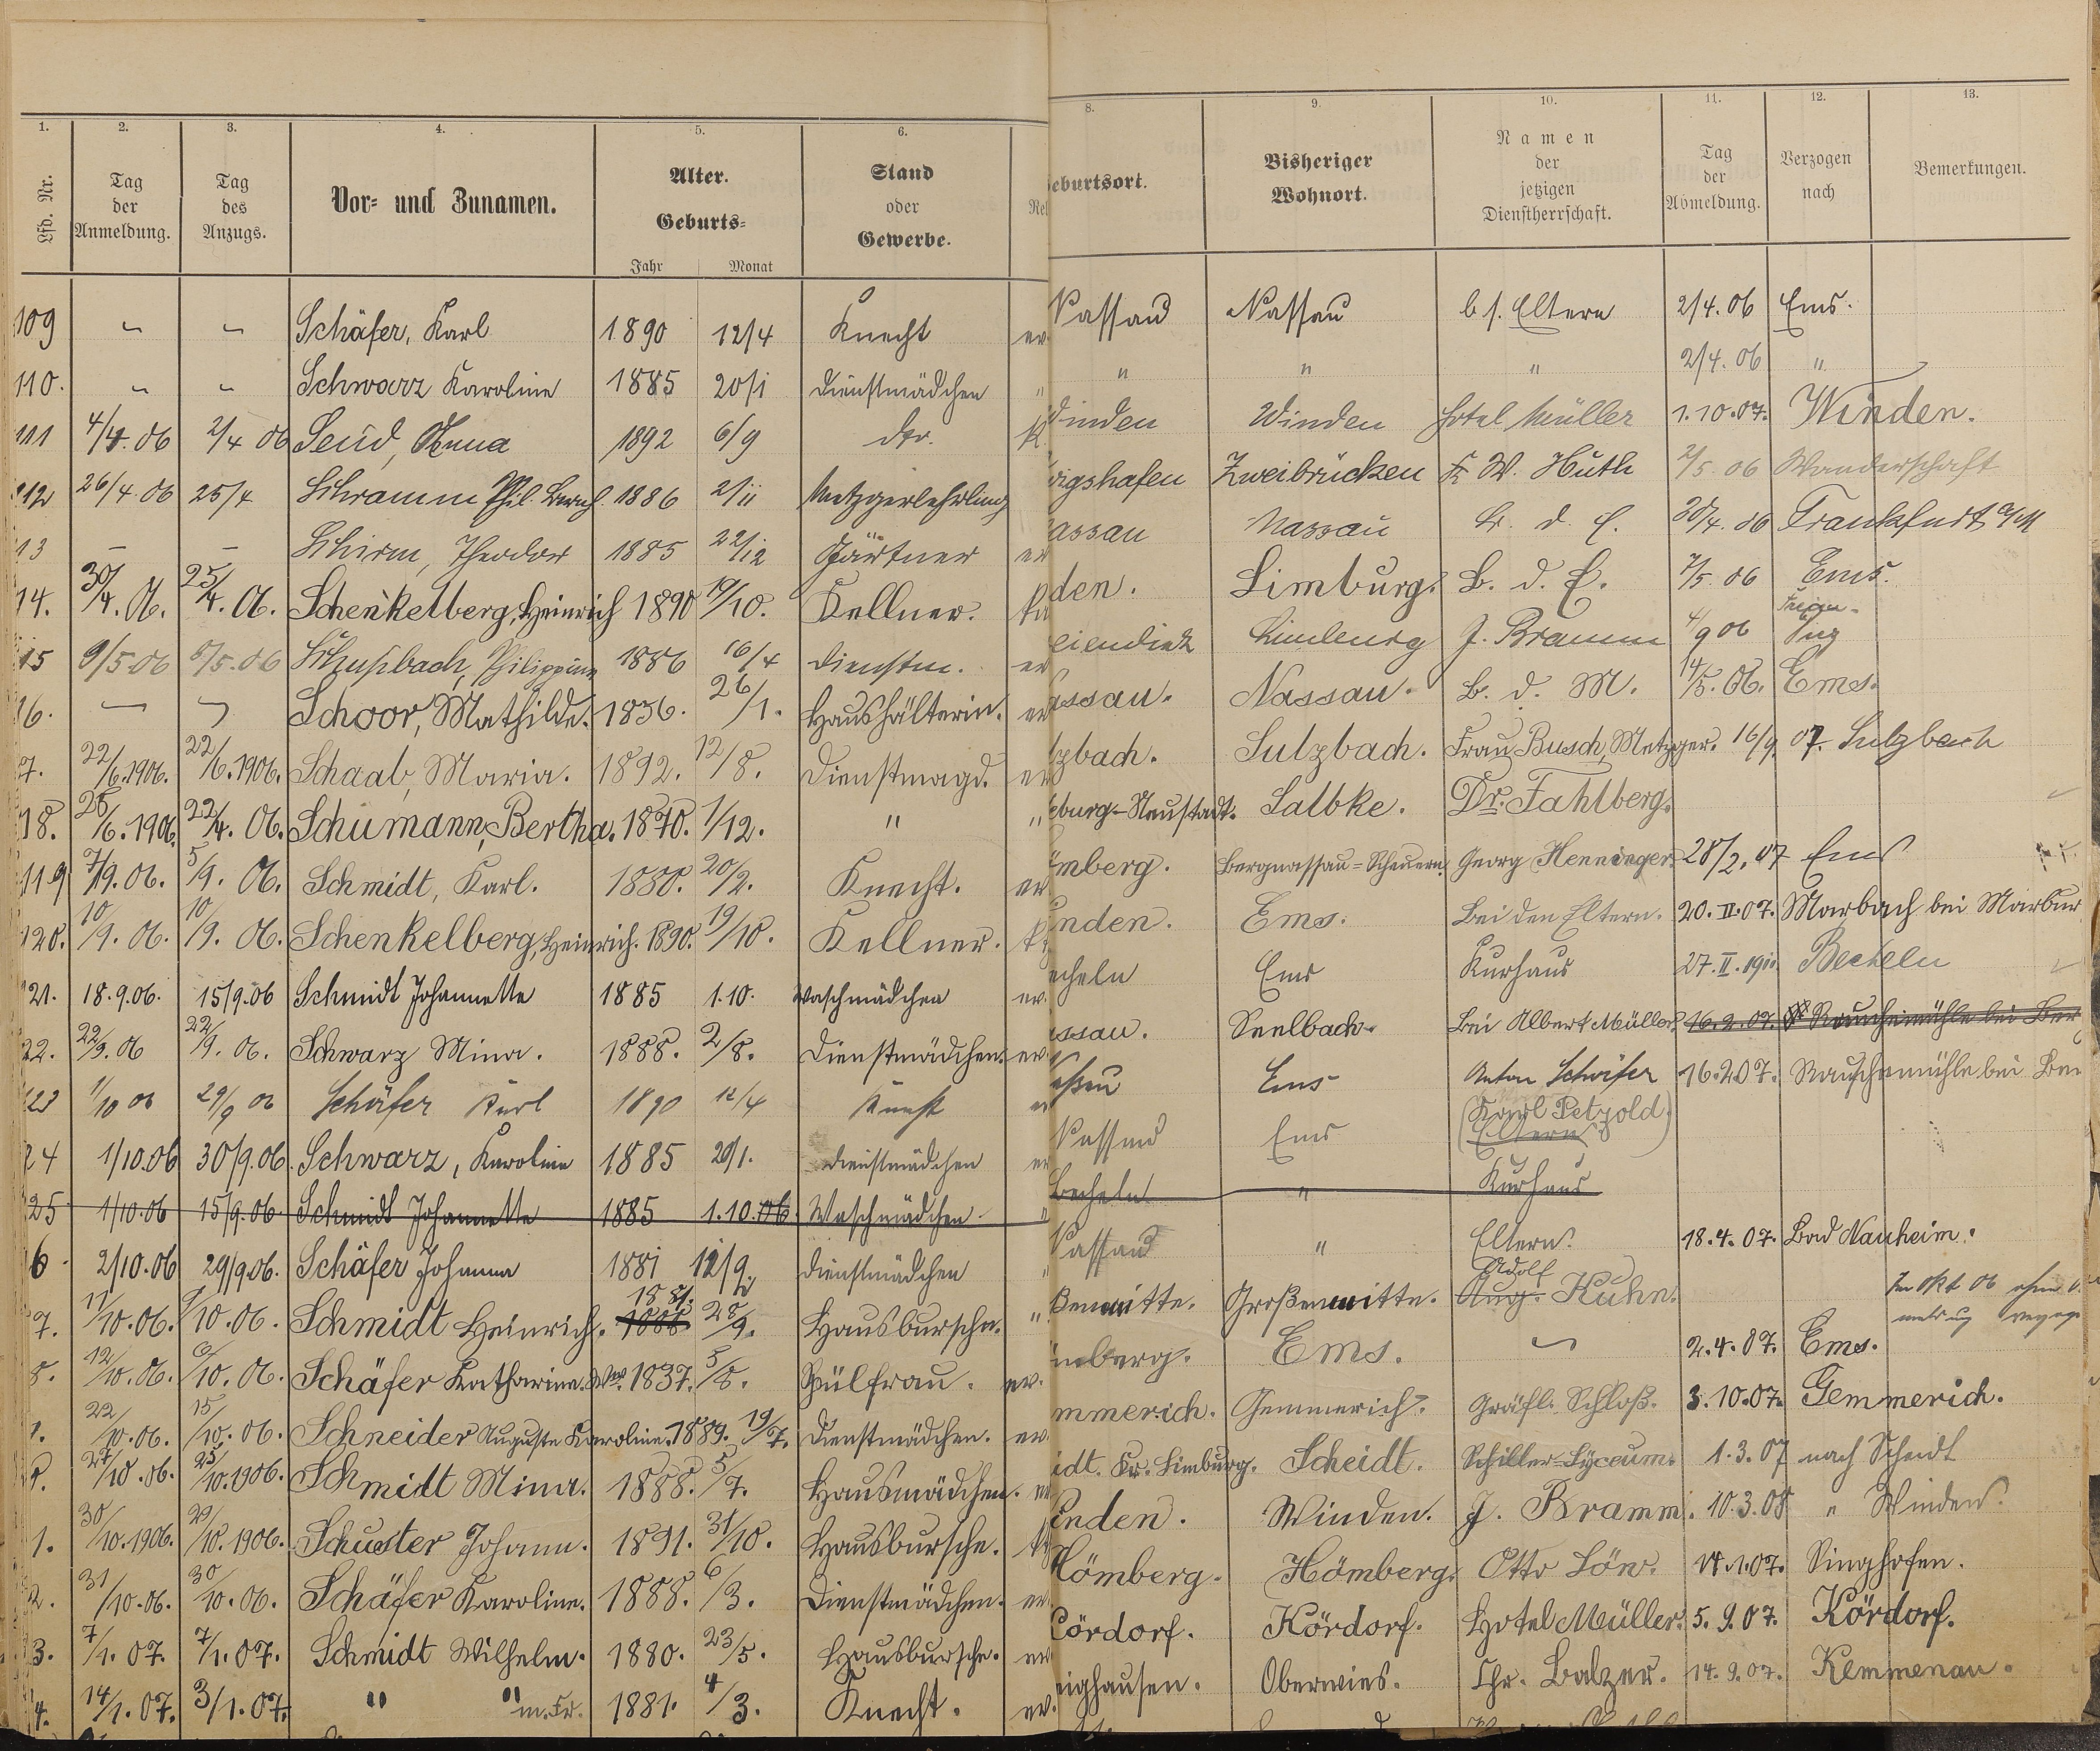 1. 2. 3. 4. 5. 6. 8. 9. 10. 11. 12. 13.
Lfd. Nr. Tag der Anmeldung. Tag des Anzugs. Vor- und Zunamen. Alter. Geburts= Jahr Monat Stand oder Gewerbe. Rel eburtsort. Bisheriger Wohnort. Namen der jetzigen Dienstherrschaft. Tag der Abmeldung. Verzogen nach Bemerkungen.
109 Schäfer, Karl 1890 12/4 Knecht ev. Nassau Nassau b s. Eltern 2/4.06 Ems.
110. Schwarz Karoline 1885 20/1 Dienstmädchen " " " " 2/4.06 "
111 4/4.06 2/4 06 Seud, Anna 1892 6/9 dto. K inden Winden Hotel Müller 1.10.07. Winden.
112 26/4.06 25/4 Schramm Phil. 1886 2/11 Metzgerlehrling igshafen Zweibrücken W. Huth 2/5.06 Wanderschaft
13 – – Schirm, Theodor 1885 22/12 Gärtner ev assau Nassau b. d. E. 20/4.06 Frankfurt a/M
14. 30/4.06. 25/4.06. Schenkelberg, Heinrich 1890 19/10. Kellner. ka den. Limburg. B. d. E. 7/5.06 Ems.
15 9/5.06 5/5.06 Philippine 1886 16/4 Dienstm. ev eiendiez Limburg J. Bramm 4/9 06
16. Schoor, Mathilde. 1856. 26/1. Haushälterin. ev assau. Nassau. B. d. M. 14/5.06. Ems.
7. 22/6.1906. 22/6.1906. Schaab, Maria. 1892. 12/8. Dienstmagd. ev zbach. Sulzbach. Frau Busch, Metzger. 16/9. 07. Sulzbach
18. 25/6.1906. 22/4.06. Schumann, Bertha. 1870. 1/12. " " eburg-Neustadt. Salbke. Dr. Fahlberg.
119 7/9.06. 5/9.06. Schmidt, Karl. 1880. 20/2. Knecht. ev mberg. Bergnassau=Scheuern. Georg Henninger. 28/2.07 Ems
120. 10/9.06. 10/9.06. Schenkelberg, Heinrich. 1890. 19/10. Kellner. k inden. Ems. Bei den Eltern. 20.II.07. Marbach bei Marbur
121. 18.9.06. 15/9.06 Schmidt Johannette 1885 1.10. Waschmädchen ev. echeln Ems Kurhaus 27.II.1911. Becheln
22. 22/9.06 22/9.06. Schwarz Mina. 1888. 2/8. Dienstmädchen. ev. assau. Seelbach. Bei Albert Müller. 16.2.07. Rauschemühle bei Ber
123 1/10 06 29/9 06 Schäfer Karl 1890 12/4 Knecht ev Ems Anton Schäfer 16.2.07. Rauschemühle bei Ber
24 1/10.06 30/9.06. Schwarz, Karoline 1885 20/1. Dienstmädchen ev Nassau Ems (Karl Petzold.) Eltern
25 1/10.06 15/9.06 Schmidt Johannette 1885 1.10.06. Waschmädchen " Becheln " Kurhaus
6 2/10.06 29/9.06. Schäfer Johanna 1881 12/9. Dienstmädchen " Nassau " Eltern. 18.4.07. Bad Nauheim.
7. 11/10.06. 9/10.06. Schmidt Heinrich. 1888 1881. 28/9. Hausbursche. " ßenwitte. Großenwitte. Aug. Adolf Kuhn. Im Okt 06 ohne
8. 12/10.06. 6/10.06. Schäfer Katharina Ww. 1837. 5/8. Spülfrau. ev. mberg. Ems. 2.4.07. Ems.
9. 22/10.06. 15/10.06. Schneider Auguste Karoline. 1889. 19/7. Dienstmädchen. ev. mmerich. Gemmerich. Gräfl. Schloß. 3.10.07. Gemmerich.
27/10.06. 25/10.1906. Schmidt Mina. 1888. 5/7. Hausmädchen. ev idt. Kr. Limburg. Scheidt. Schiller-Lyceum. 1.3.07 nach Scheidt
1. 30/10.1906. 29/10.1906. Schuster Johann. 1891. 31/10. Hausbursche. k inden. Winden. J. Bramm. 10.3.08 " Winden.
2. 31/10.06. 30/10.06. Schäfer Karoline. 1888. 6/3. Dienstmädchen. ev. Hömberg. Hömberg. Otto Löw. 17.1.07. Singhofen.
3. 7/1.07. 7/1.07. Schmidt Wilhelm. 1880. 23/5. Hausbursche. ev Kördorf. Kördorf. Hotel Müller. 5.9.07. Kördorf.
4. 14/1.07. 3/1.07. " " m. Fr. 1881. 4/3. Knecht. ev. ighausen. Oberwies. Chr. Balzer. 14.9.07. Kemmenau.